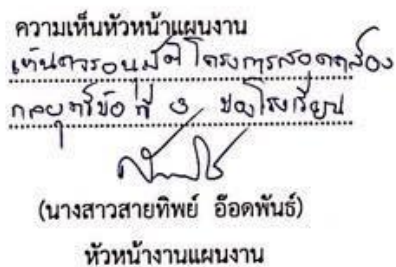 ความเห็นหัวหน้าแผนงาน
เห็นควรอนุมัติ โครงการสอดคล้อง
กลยุทธ์ข้อ ที่ 3 ของโรงเรียน
(นางสาวสายทิพย์ อ๊อดพันธ์)
หัวหน้างานแผนงาน